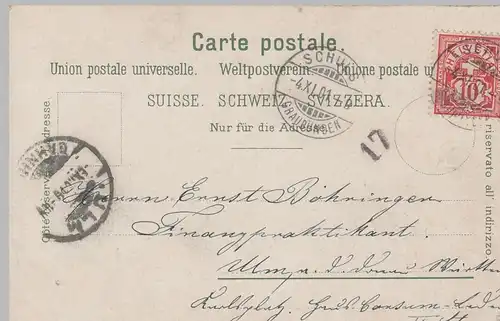 Carte postale.
Union postale universelle. Weltpostverein. Unione postale
SUISSE. SCHWEIZ. SVIZZERA.
Nur für die Adresse.
SCHULS
-4.XI.01.-7
(GRAUBÜNDEN)
17
10
Côté réservé à l'adresse.
riservato all' indirizzo.
Herrn Ernst Böhringer
Finanzpraktikant.
Ulm, a. d. Donau Württ
Karlsplatz, Haus Consum-Laden